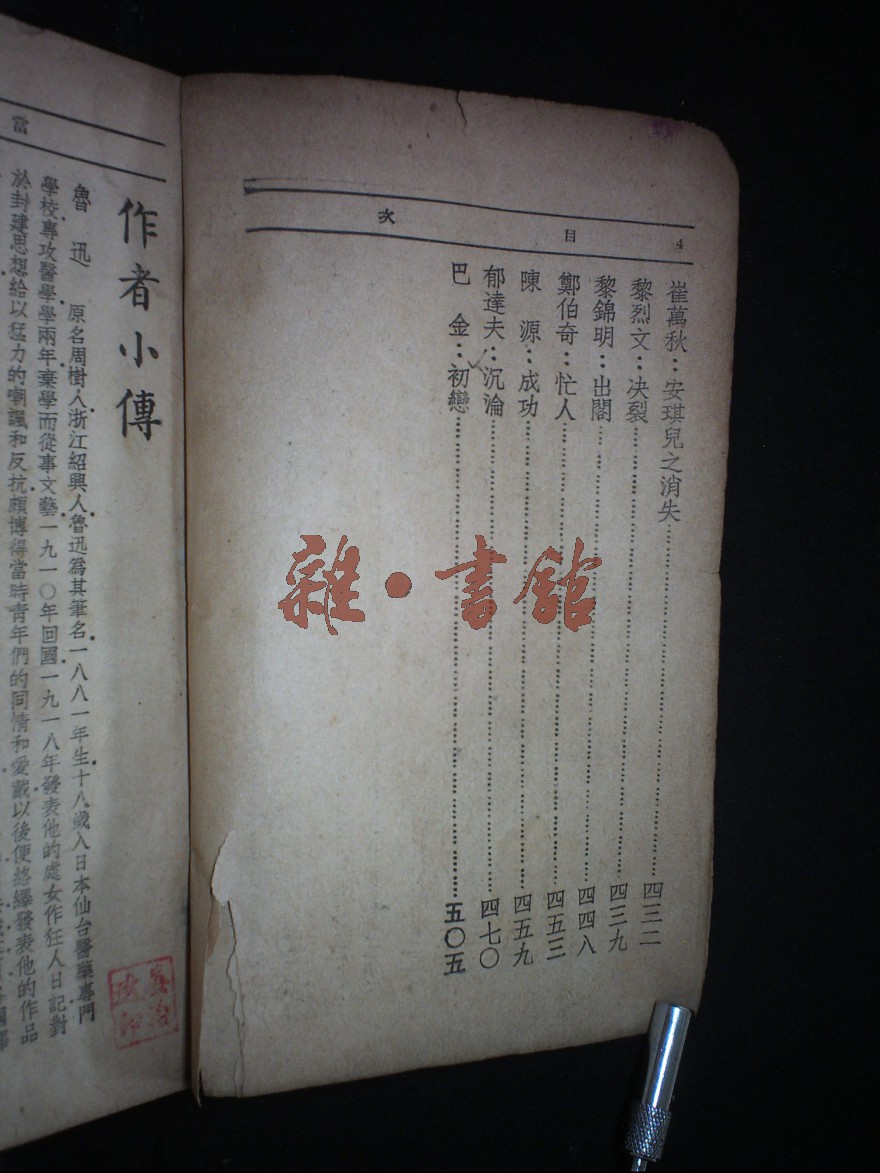 4 目次
崔萬秋：安琪兒之消失……四三二
黎烈文：决裂……四三九
黎錦明：出閣……四四八
鄭伯奇：忙人……四五三
陳源：成功……四五九
郁達夫：沉淪……四七〇
巴金：初戀……五〇五
雜·書館
當
作者小傳
魯迅 原名周樹人浙江紹興人魯迅爲其筆名一八八一年生十八歲入日本仙台醫藥專門
學校專攻醫學學兩年棄學而從事文藝一九一〇年回國一九一八年發表他的處女作狂人日記對
於封建思想給以猛力的嘲諷和反抗頗博得當時靑年們的同情和愛戴以後便絡繹發表他的作品